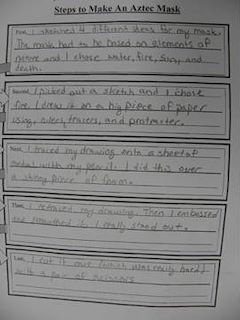 Steps to Make An Aztec Mask
First, I sketched 4 different ideas for my mask.
The mask had to be based on elements of
nature and I chose water, fire, sun, and
death.
Second, I picked out a sketch and I chose
fire. I drew it on a big piece of paper
using rulers, tracers, and protractor.
Next, I traced my drawing onto a sheet of
metal with my pencil. I did this over
a skinny piece of foam.
Then, I retraced my drawing. Then I embossed
and smoothed it. I really stand out.
Last, I cut it out (which was really hard)
with a pair of scissors.